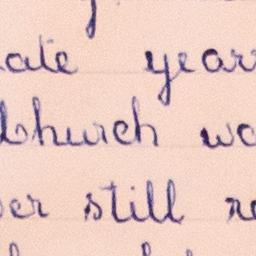 ate years
Church wo
er still re